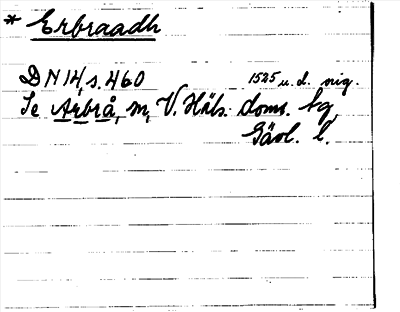 * Erbraadh
DN 14, s. 460 1525 u. d. sig.
Se Arbrå, m, V. Häls. doms. hg
Gävl. l.